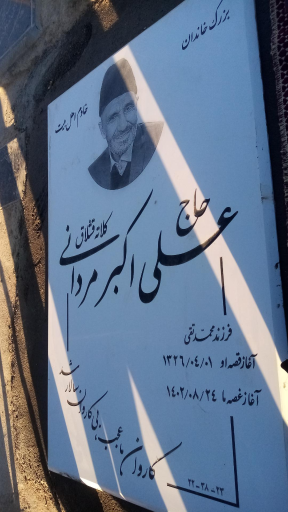 بزرگ خاندان
خادم اهل بیت
حاج
علی اکبر مردانی
کلاته قشلاق
فرزند محمدتقی
آغاز قصه او ۱۳۲۶/۰۴/۰۱
آغاز غصه ما ۱۴۰۲/۰۸/۲۴
کاروان ما عجب، بی کاروان سالار شد
۲۲-۳۸-۲۳